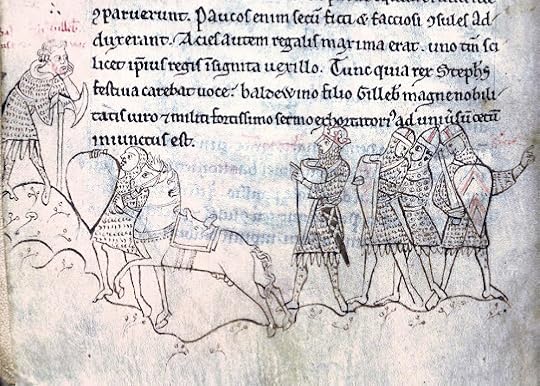 ꝯparuerunt. Paucos enim secū ficti & factiosi ꝯsules ad
duxerant. Acies autem regalis maxima erat. uno tm̄ sci
licet ip̄ius regis insignita uexillo. Tunc quia rex Stephs
festiua carebat uoce: baldewino filio Gilleb̄ magne nobili
tatis uiro & militi fortissimo sermo exhortatoriꝰ ad uniūsū cetū
iniunctus est.